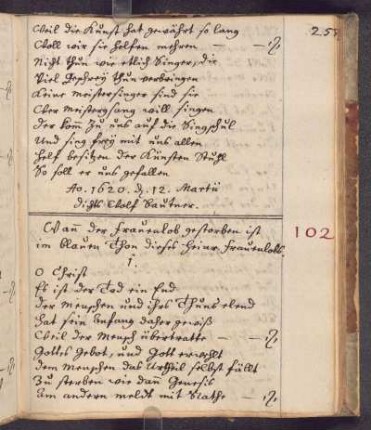 Weil die Kunst hat gewährt so lang
Woll wir sie helfen mehren
Nicht thun wie etlich Singer, die
Viel thun verbringen
Keine Meistersinger sind sie
Wer Meistergsang will singen
Der komm zu uns auf die Singschul
Und sing frey mit uns allen
helf besitzen der Künsten Stuhl
So soll er uns gefallen
Ao. 1620. d. 12. Martii
dichts Wolf Bautner.
257
Wañ der Frauenlob gestorben ist
im blauen Thon dieses Heinr. Frauenlobs.
102
1.
O Christ
Es ist der Tod ein End
der Menschen und ihrs Thuns elend
hat sein Anfang daher gewiß
Weil der Mensch übertratte
Gottes Gebot, und Gott
dem Menschen das Urtheil selbst fällt
Zu sterben wie dañ Genesis
Am andern meldt mit Rathe